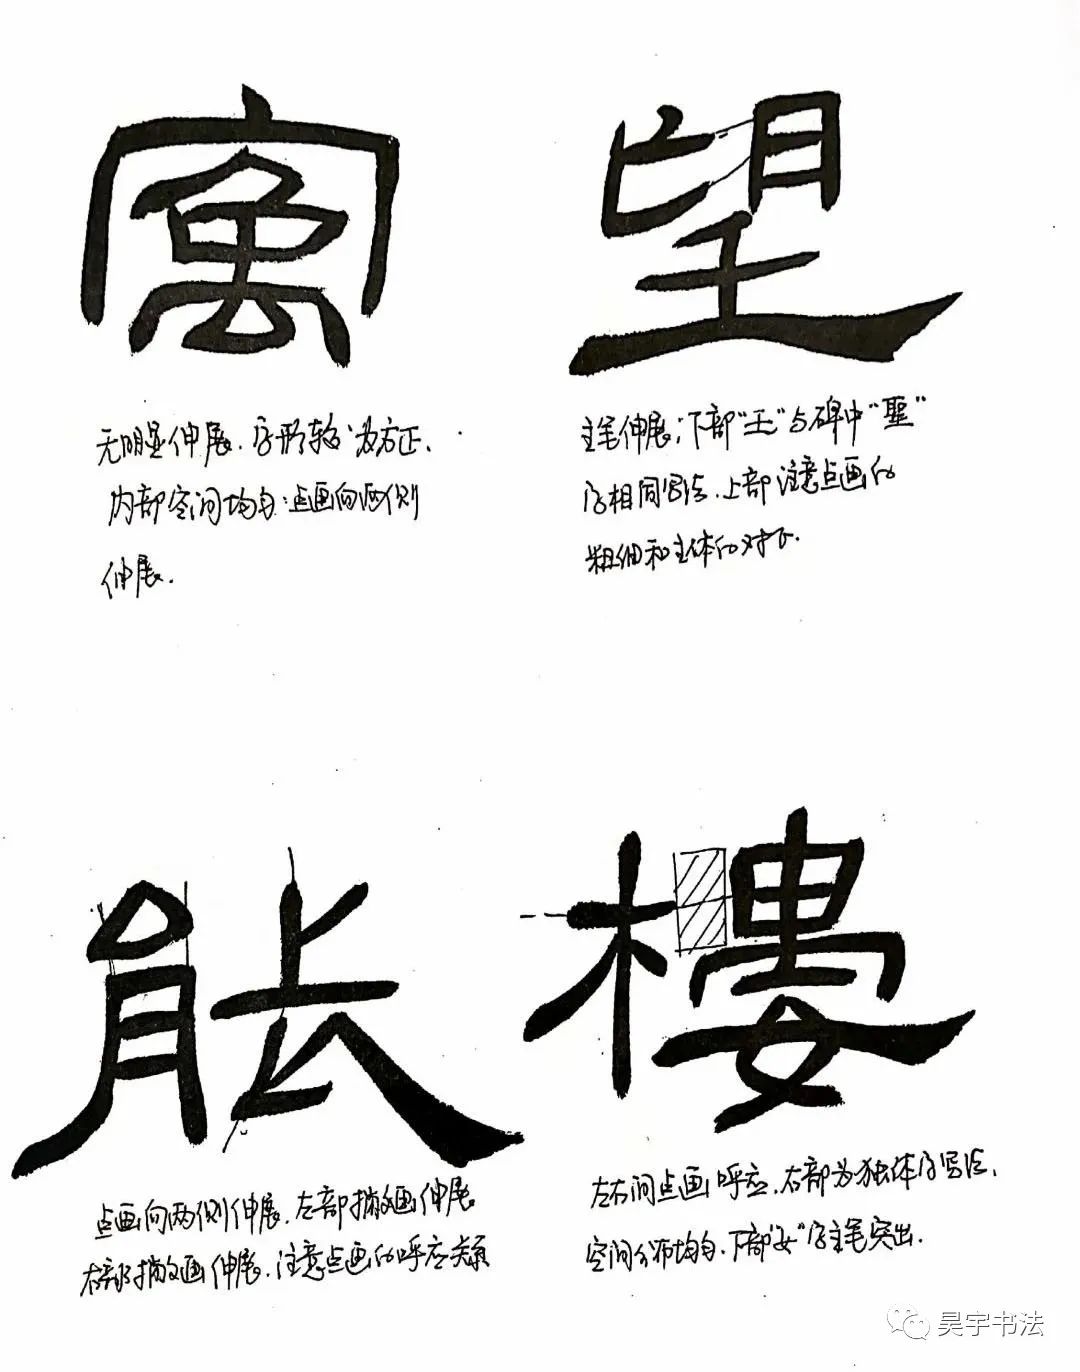 寓
望
无明显伸展.字形较为方正.
内部空间均匀.点画向两侧
伸展.
主笔伸展;下部“王”与碑中“聖”
字相同写法.上部注意点画的
粗细和主体的对正.
能
樓
点画向两侧伸展.左部撇画伸展
右部捺画伸展.注意点画的呼应关系
左右间点画呼应.右部为独体字写法.
空间分布均匀.下部“女”字主笔突出.
昊宇书法